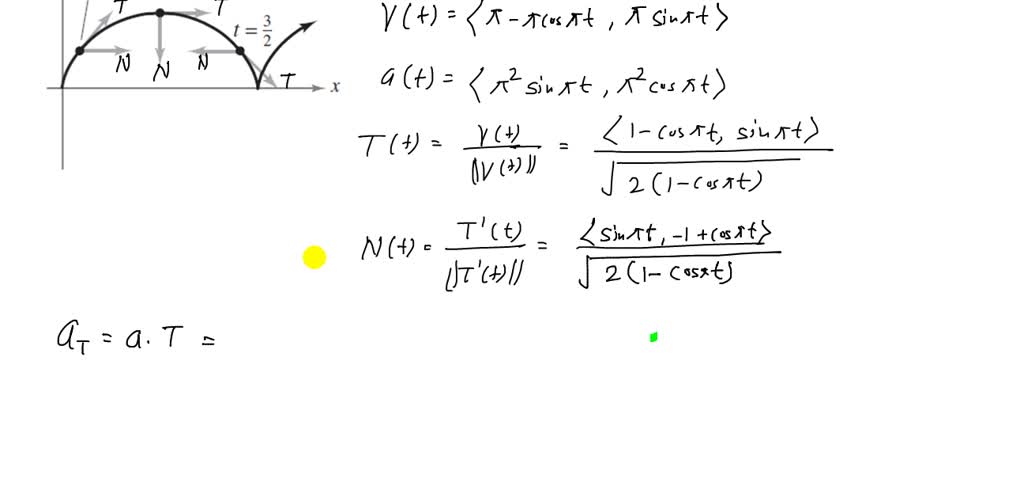 T T
t = 3/2
N N N
T x
V(t) = ⟨π - π cos πt, π sin πt⟩
a(t) = ⟨π² sin πt, π² cos πt⟩
T(t) = V(t)/||V(t)|| = ⟨1 - cos πt, sin πt⟩/√2(1 - cos πt)
N(t) = T'(t)/||T'(t)|| = ⟨sin πt, -1 + cos πt⟩/√2(1 - cos πt)
a_T = a · T =